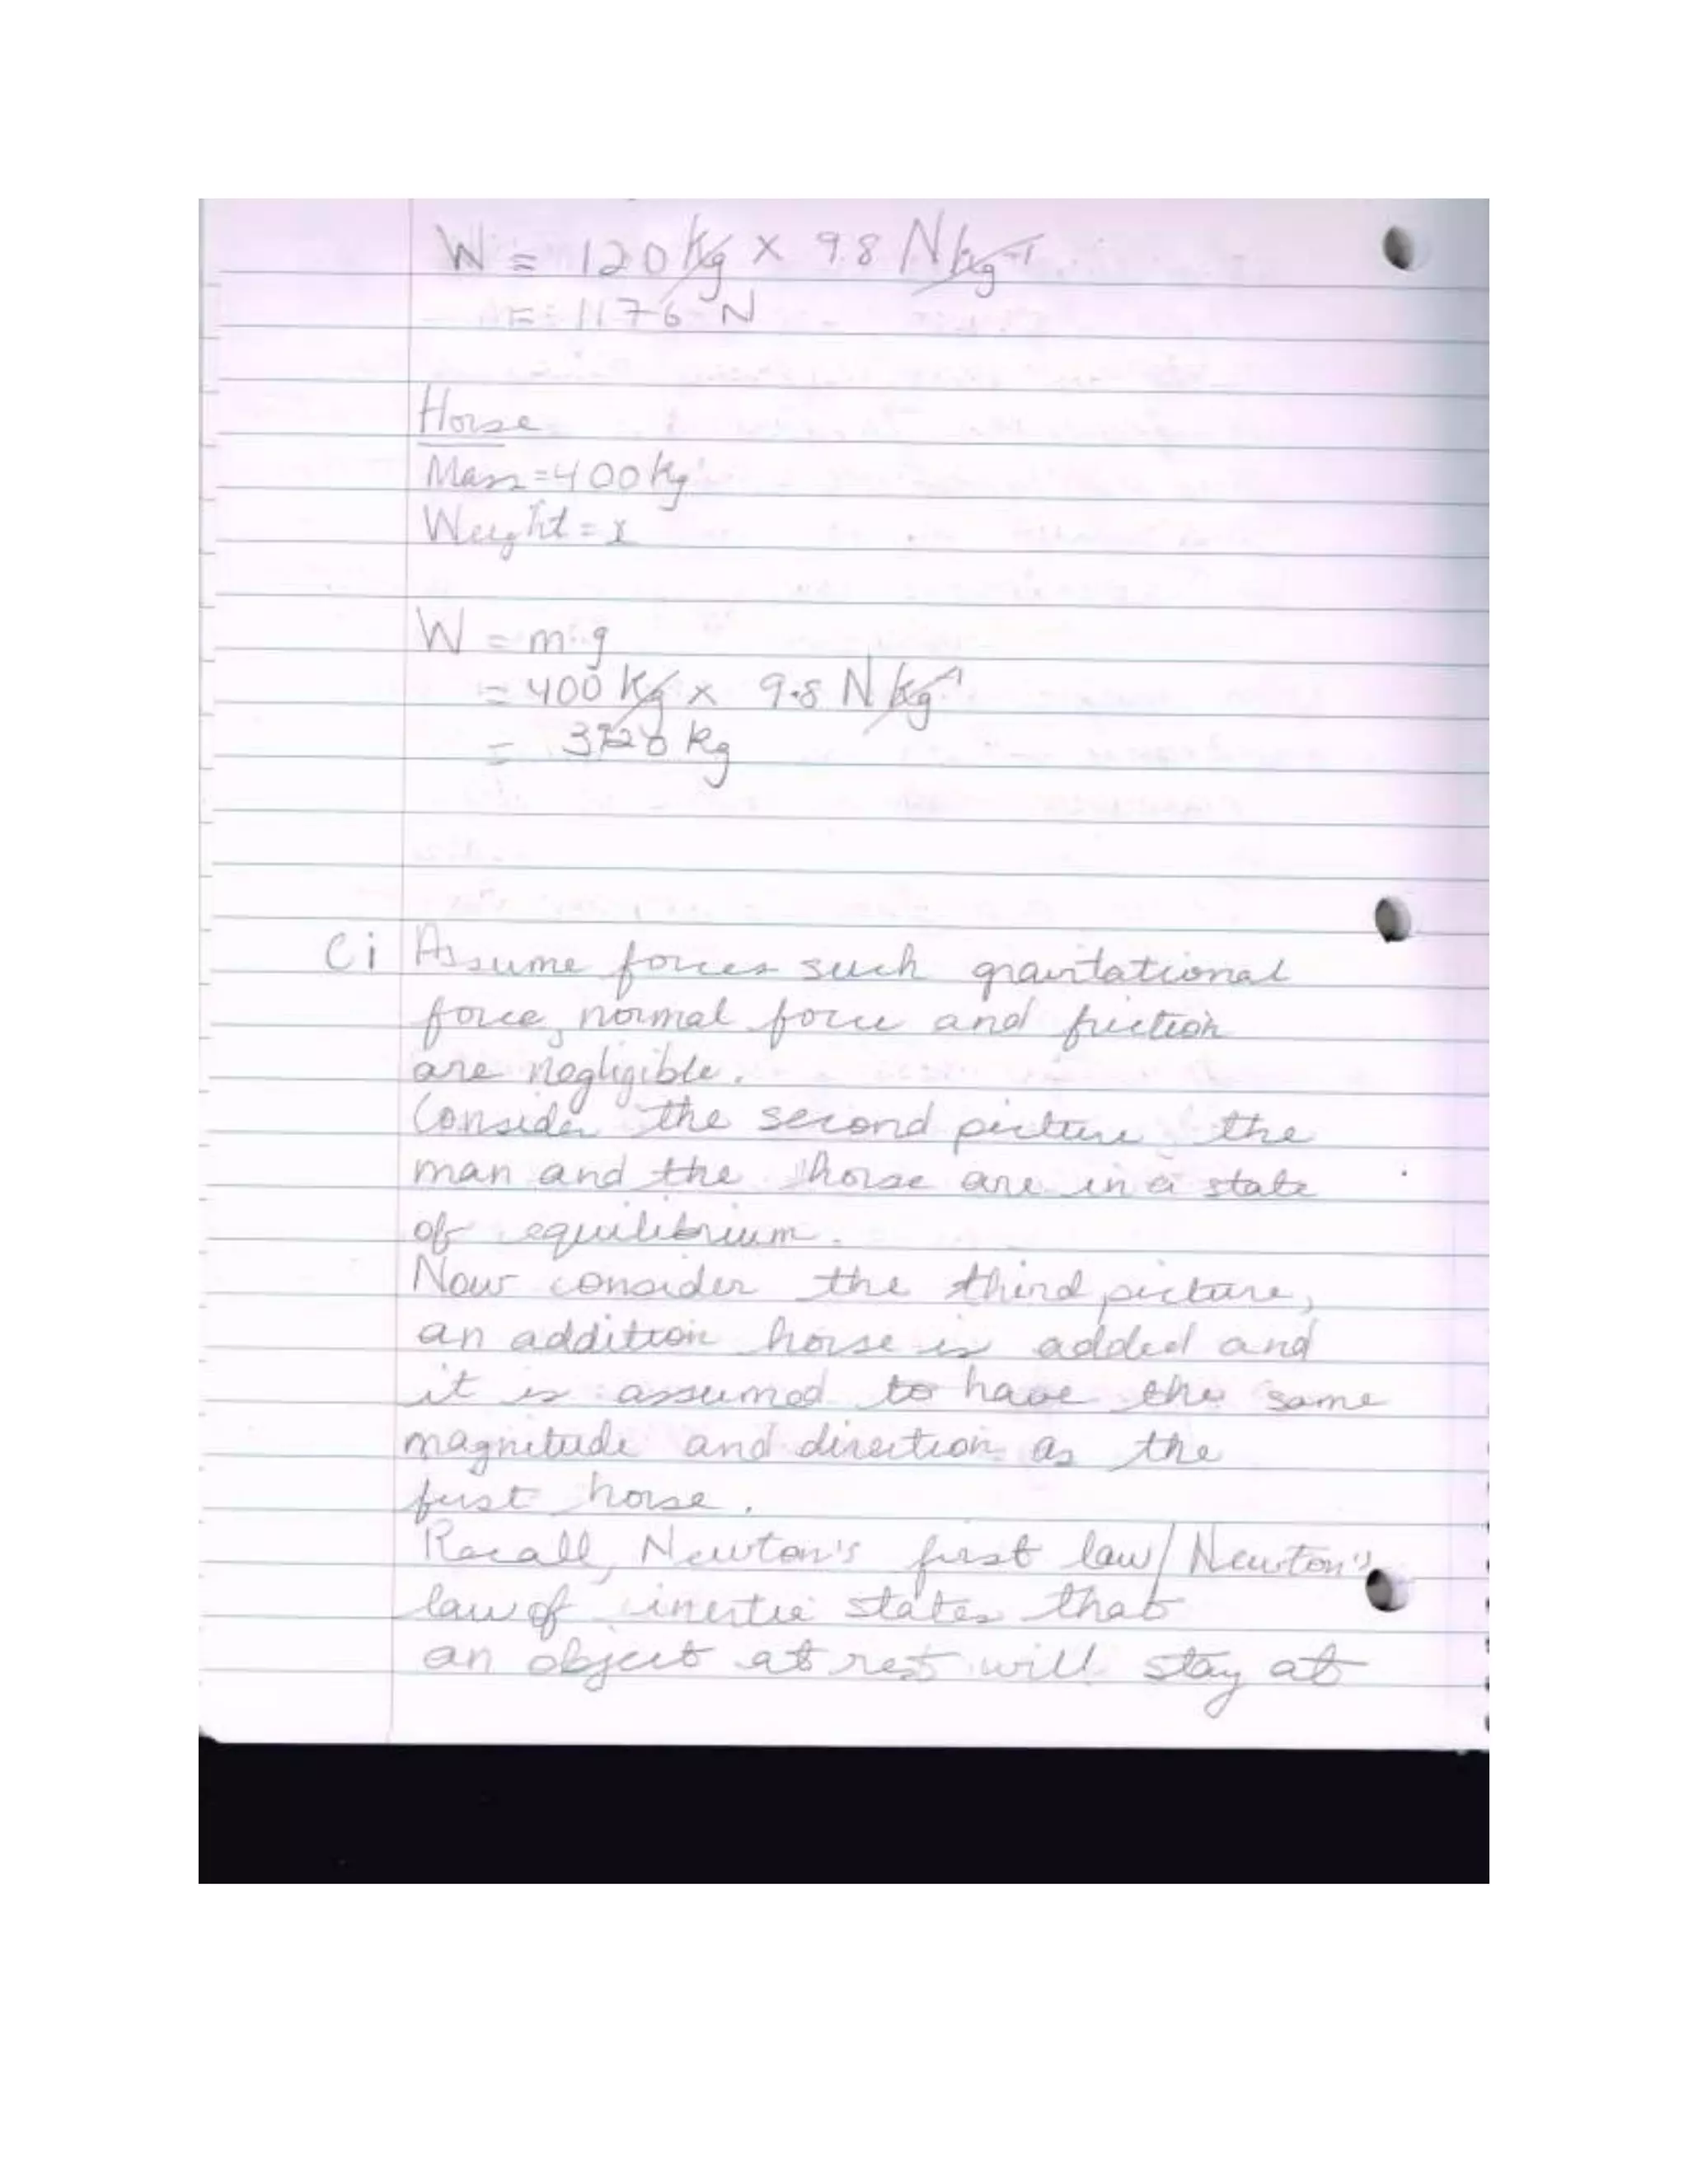 W = 120 kg x 9.8 N kg-1
= 1176 N
Horse
Mass = 400 kg
Weight = x
W = m·g
= 400 kg x 9.8 N kg-1
= kg
Ci Assume forces such gravitational
force, normal force and friction
are negligible.
Consider the second picture the
man and the horse are in a state
of equilibrium.
Now consider the third picture,
an addition horse is added and
it is assumed to have the same
magnitude and direction as the
first horse.
Recall, Newton's first law/Newton's
law of inertia states that
an object at rest will stay at